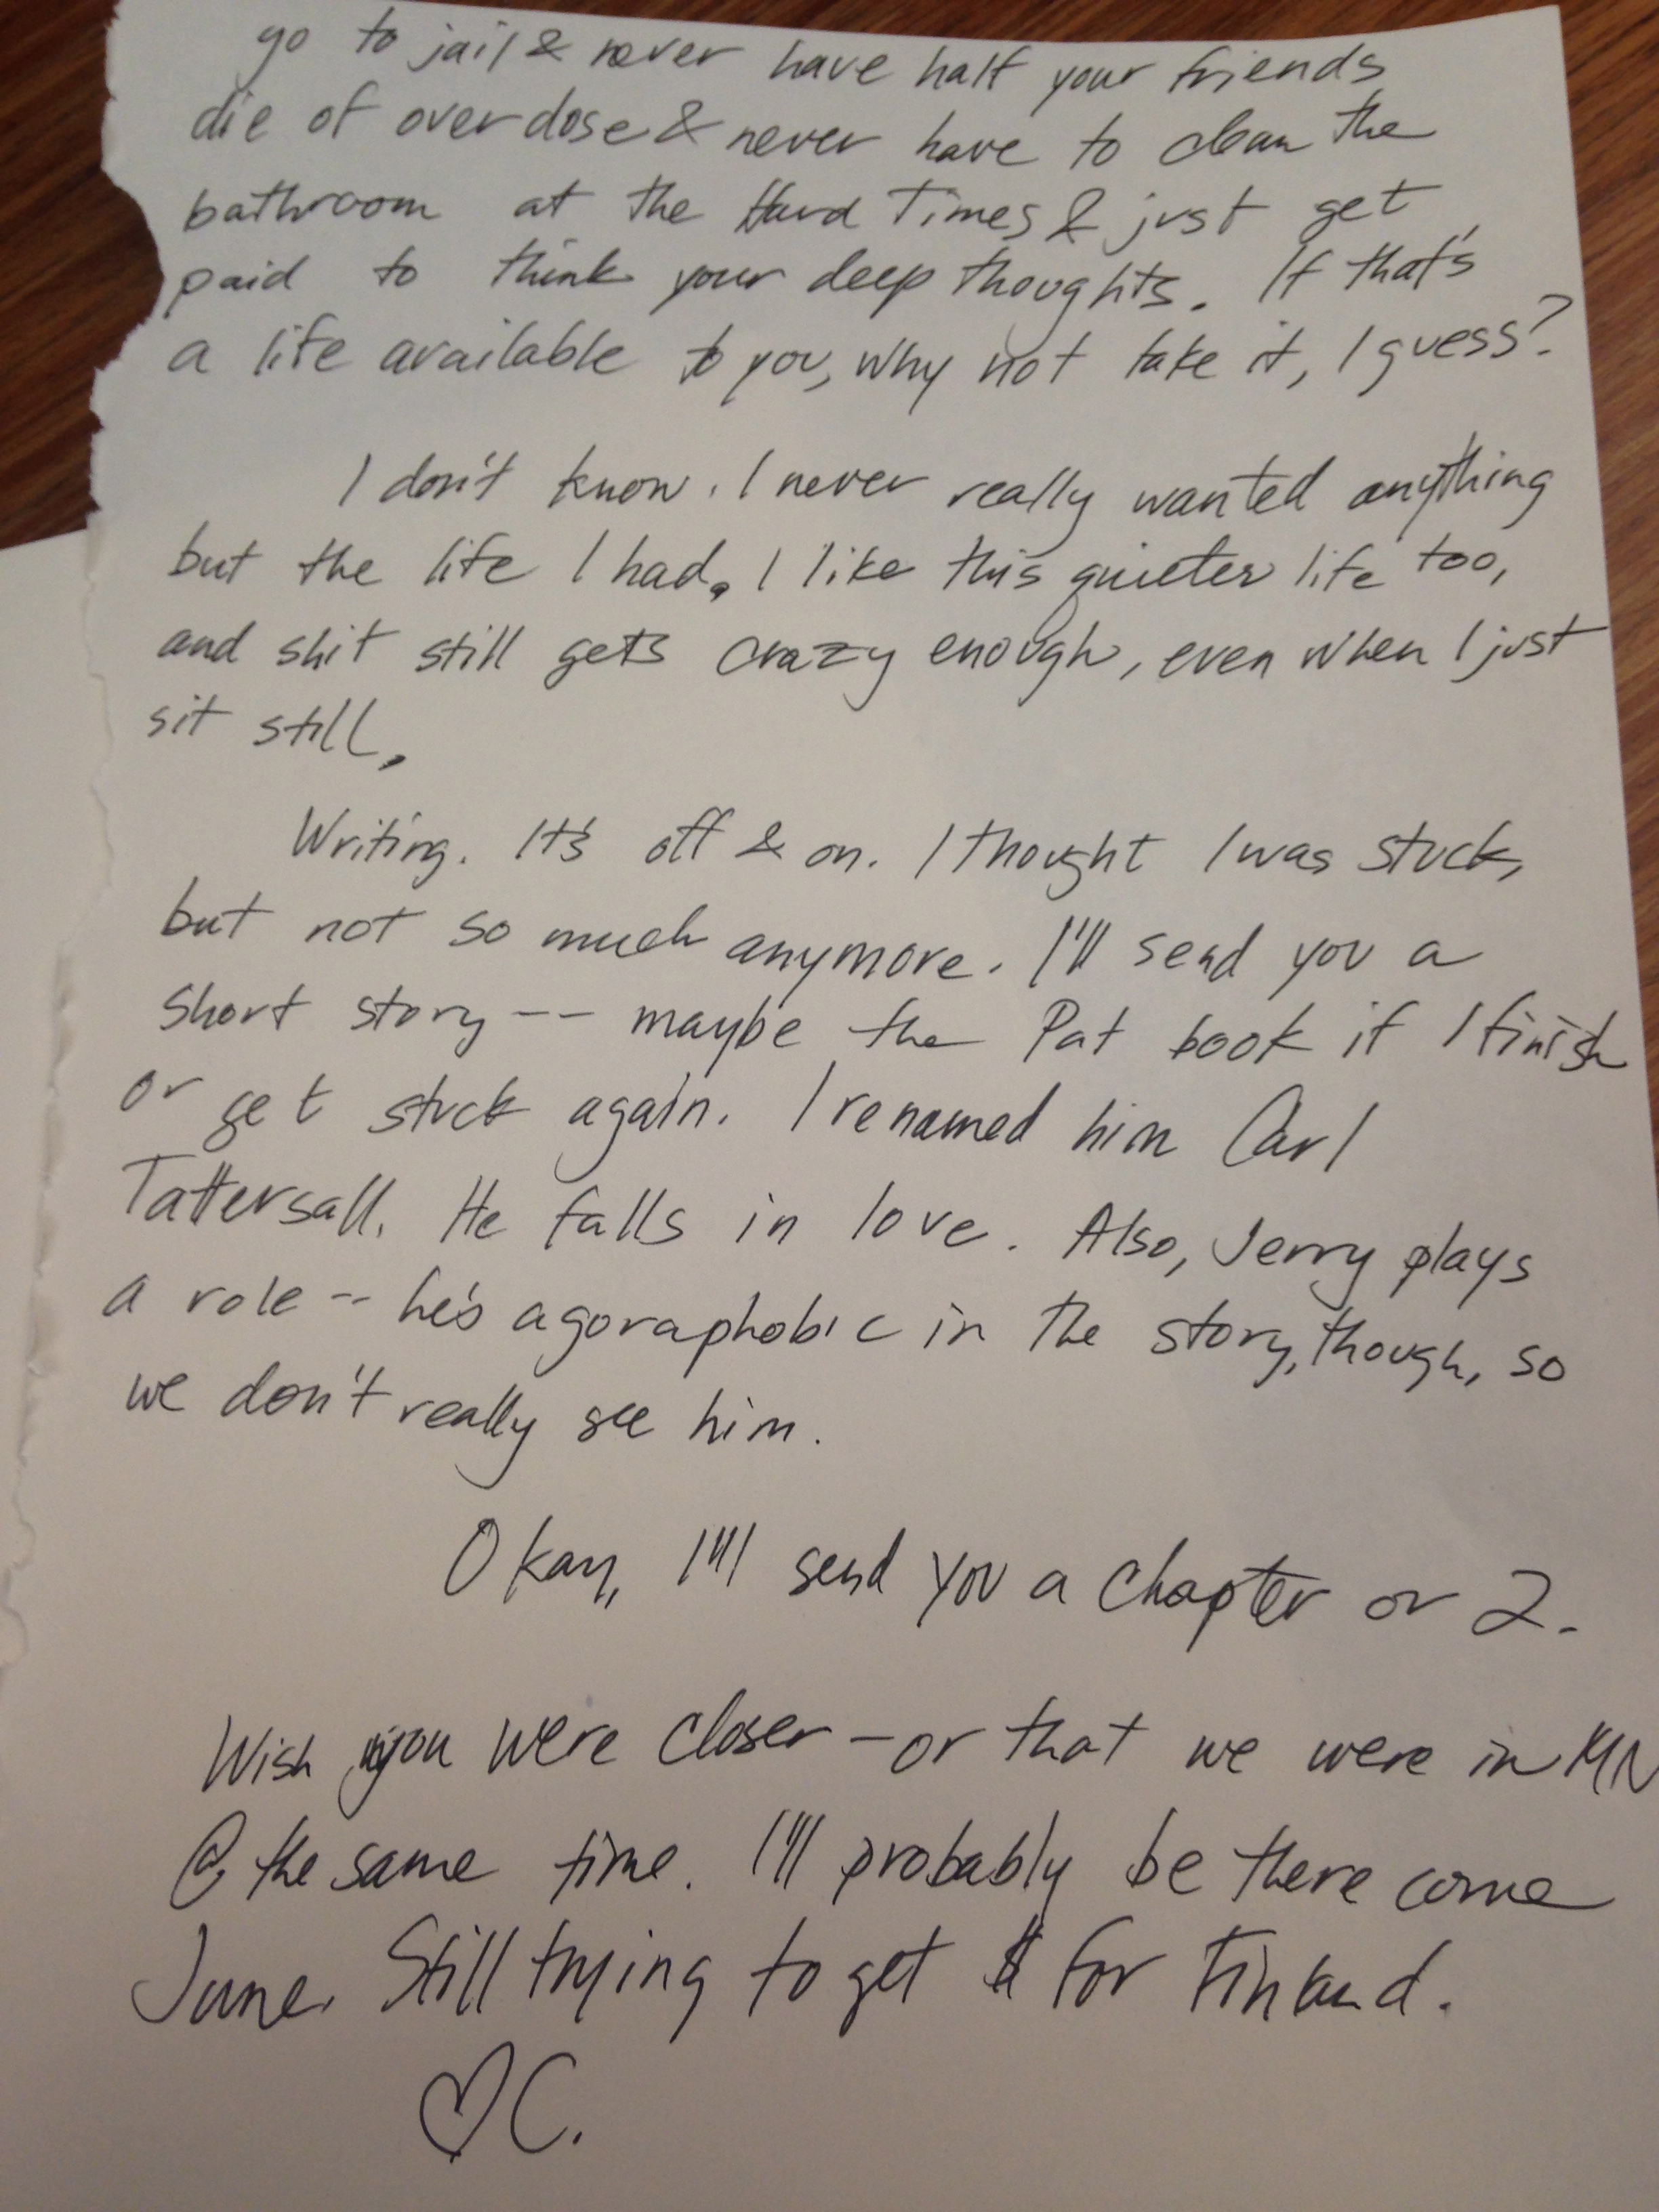 go to jail & never have half your friends
die of overdose & never have to clean the
bathroom at the Hard Times & just get
paid to think your deep thoughts. If that's
a life available to you, why not take it, I guess?
I don't know. I never really wanted anything
but the life I had. I like this quieter life too,
and shit still gets crazy enough, even when I just
sit still.
Writing. It's off & on. I thought I was stuck,
but not so much anymore. I'll send you a
short story -- maybe the Pat book if I finish
or get stuck again. I renamed him Carl
Tattersall. He falls in love. Also, Jerry plays
a role -- he's agoraphobic in the story, though, so
we don't really see him.
Okay, I'll send you a chapter or 2.
Wish you were closer - or that we were in MN
@ the same time. I'll probably be there come
June. Still trying to get $ for Finland.
♡ C.